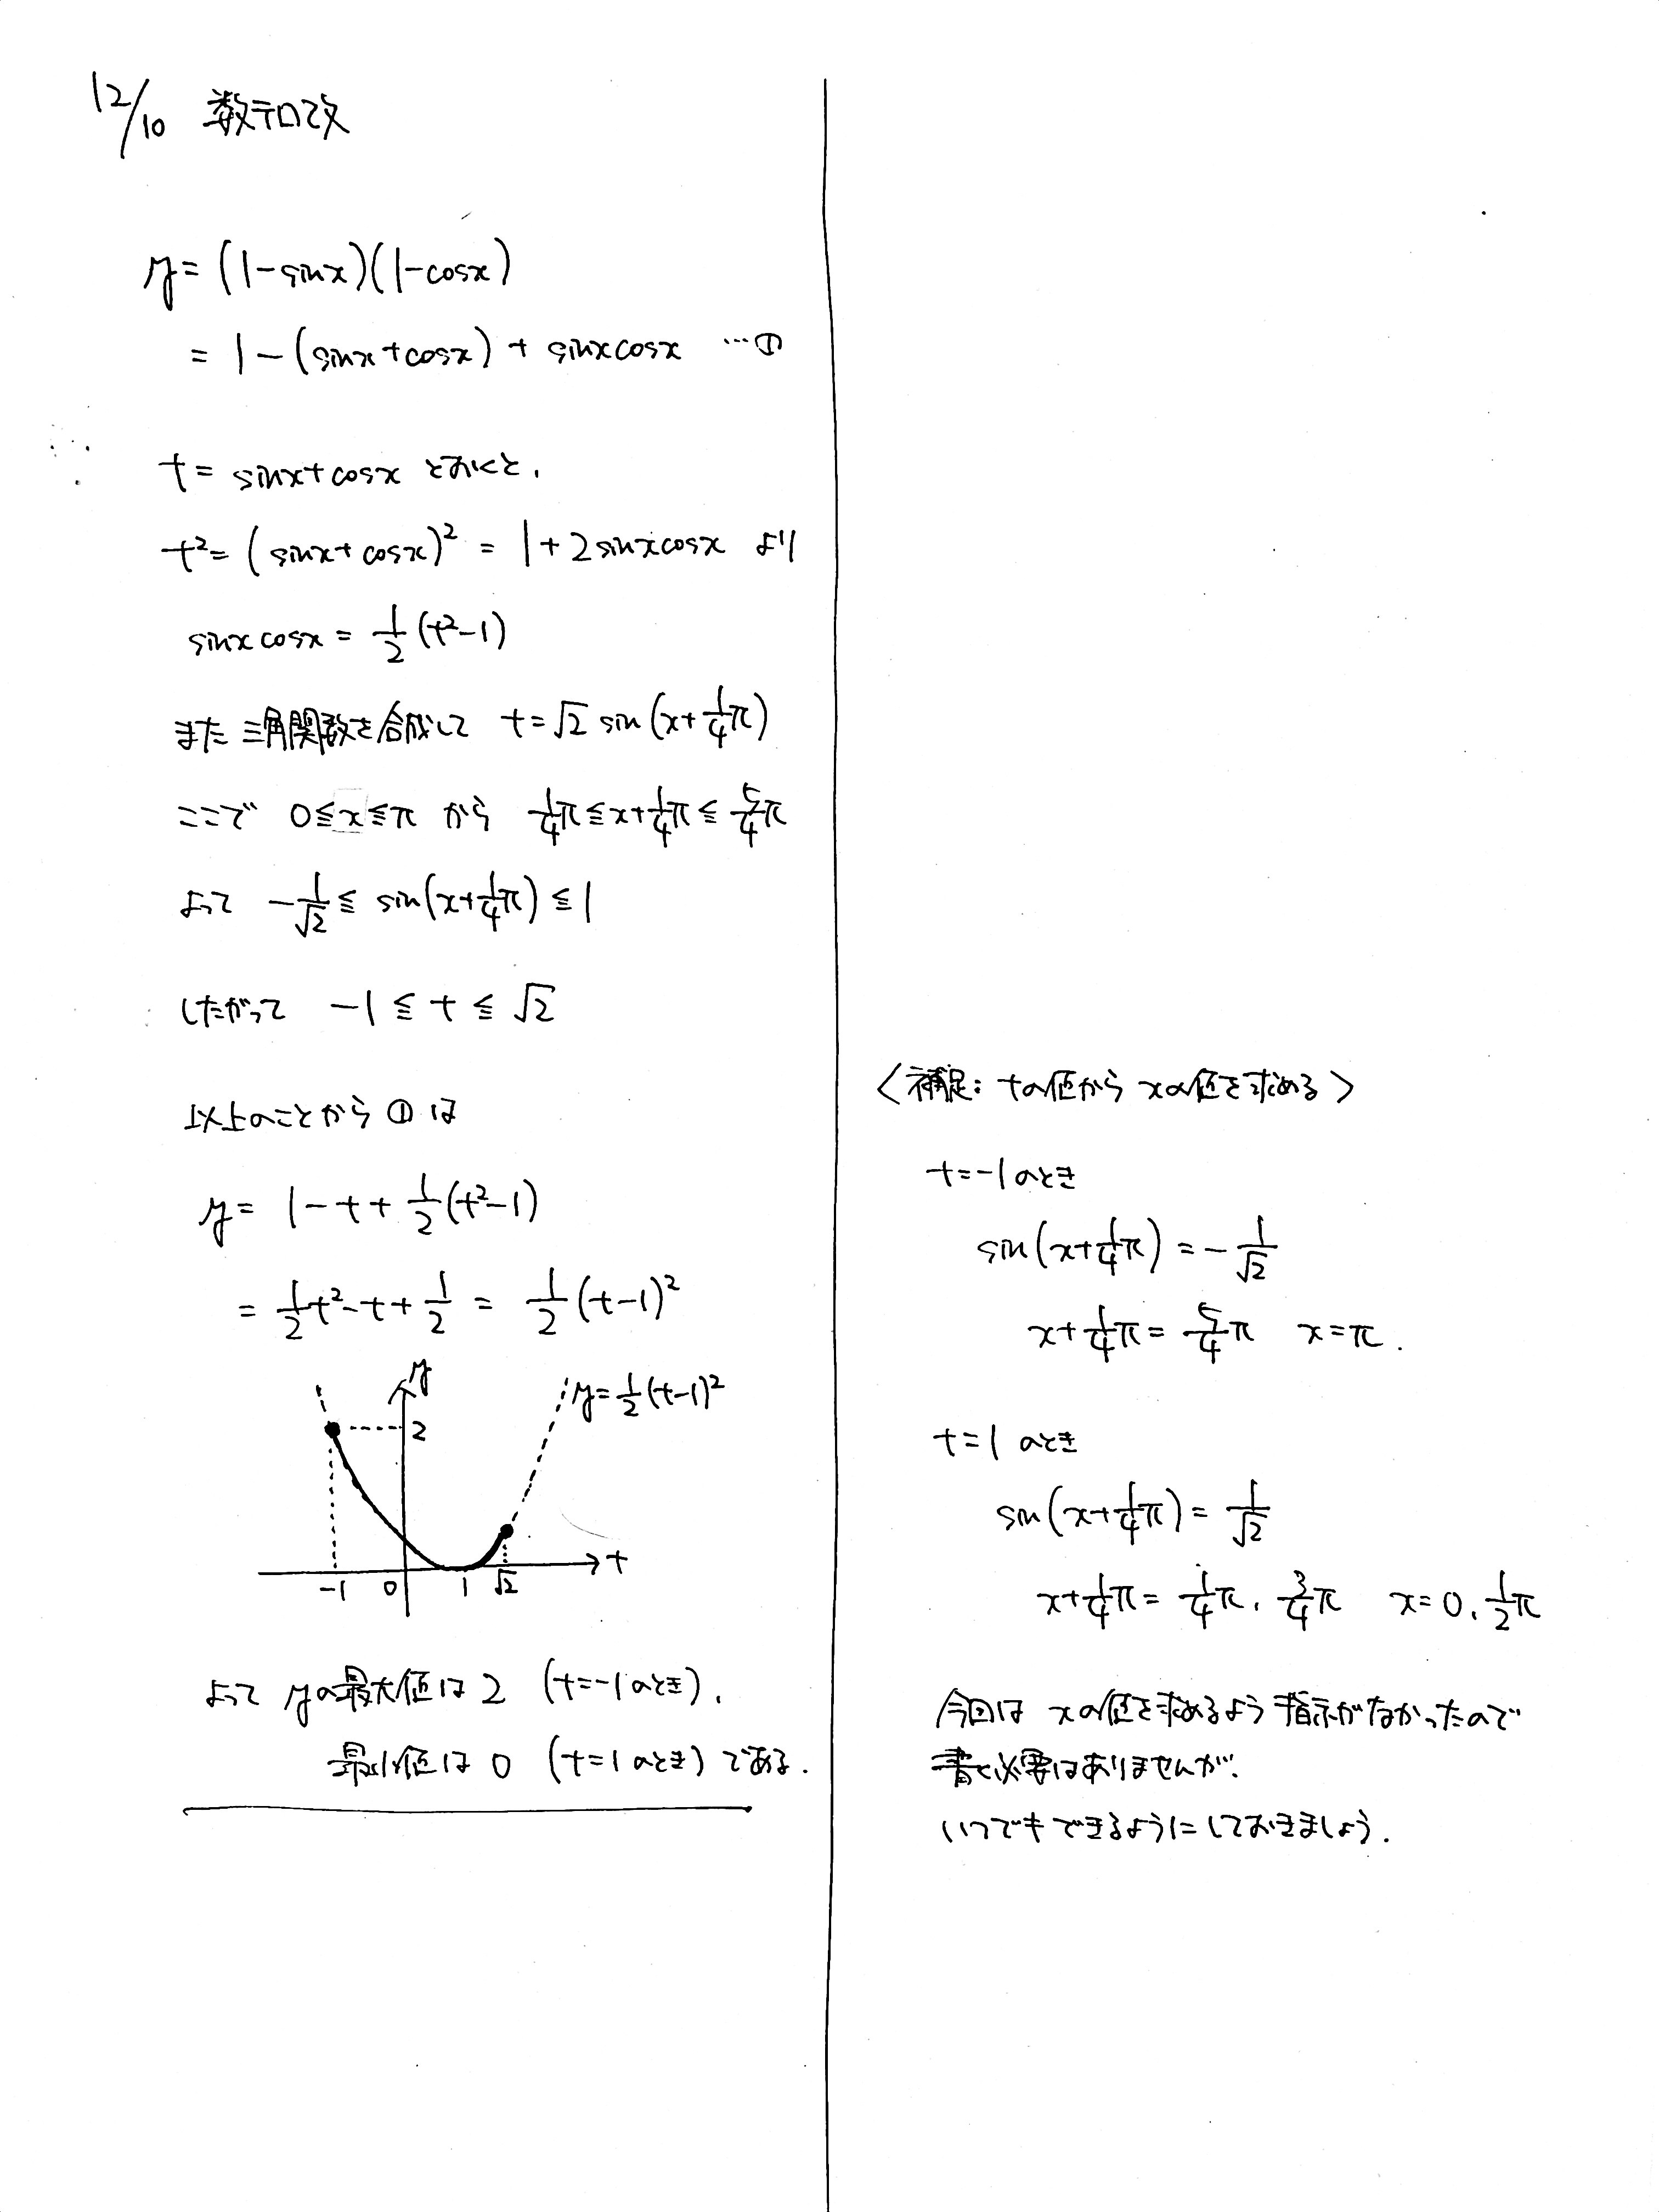 12/10 数テロ改
y = (1-sinx)(1-cosx)
= 1-(sinx+cosx)+sinxcosx …①
t = sinx+cosx とおくと、
t² = (sinx+cosx)² = 1+2sinxcosx より
sinxcosx = 1/2(t²-1)
また三角関数を合成して t=√2 sin(x+1/4π)
ここで 0≦x≦π から 1/4π≦x+1/4π≦5/4π
よって -1/√2 ≦ sin(x+1/4π) ≦ 1
したがって -1 ≦ t ≦ √2
以上のことから ① は
y = 1-t+1/2(t²-1)
= 1/2t²-t+1/2 = 1/2(t-1)²
y
y=1/2(t-1)²
2
-1 0 1 √2 t
よって yの最大値は 2 (t=-1のとき)、
最小値は 0 (t=1のとき) である.
〈補足: tの値から xの値を求める〉
t=-1のとき
sin(x+1/4π) = -1/√2
x+1/4π = 5/4π x=π.
t=1 のとき
sin(x+1/4π) = 1/√2
x+1/4π = 1/4π, 3/4π x=0, 1/2π
今回は xの値を求めるよう指示がなかったので
書く必要はありませんが、
いつでもできるようにしておきましょう.